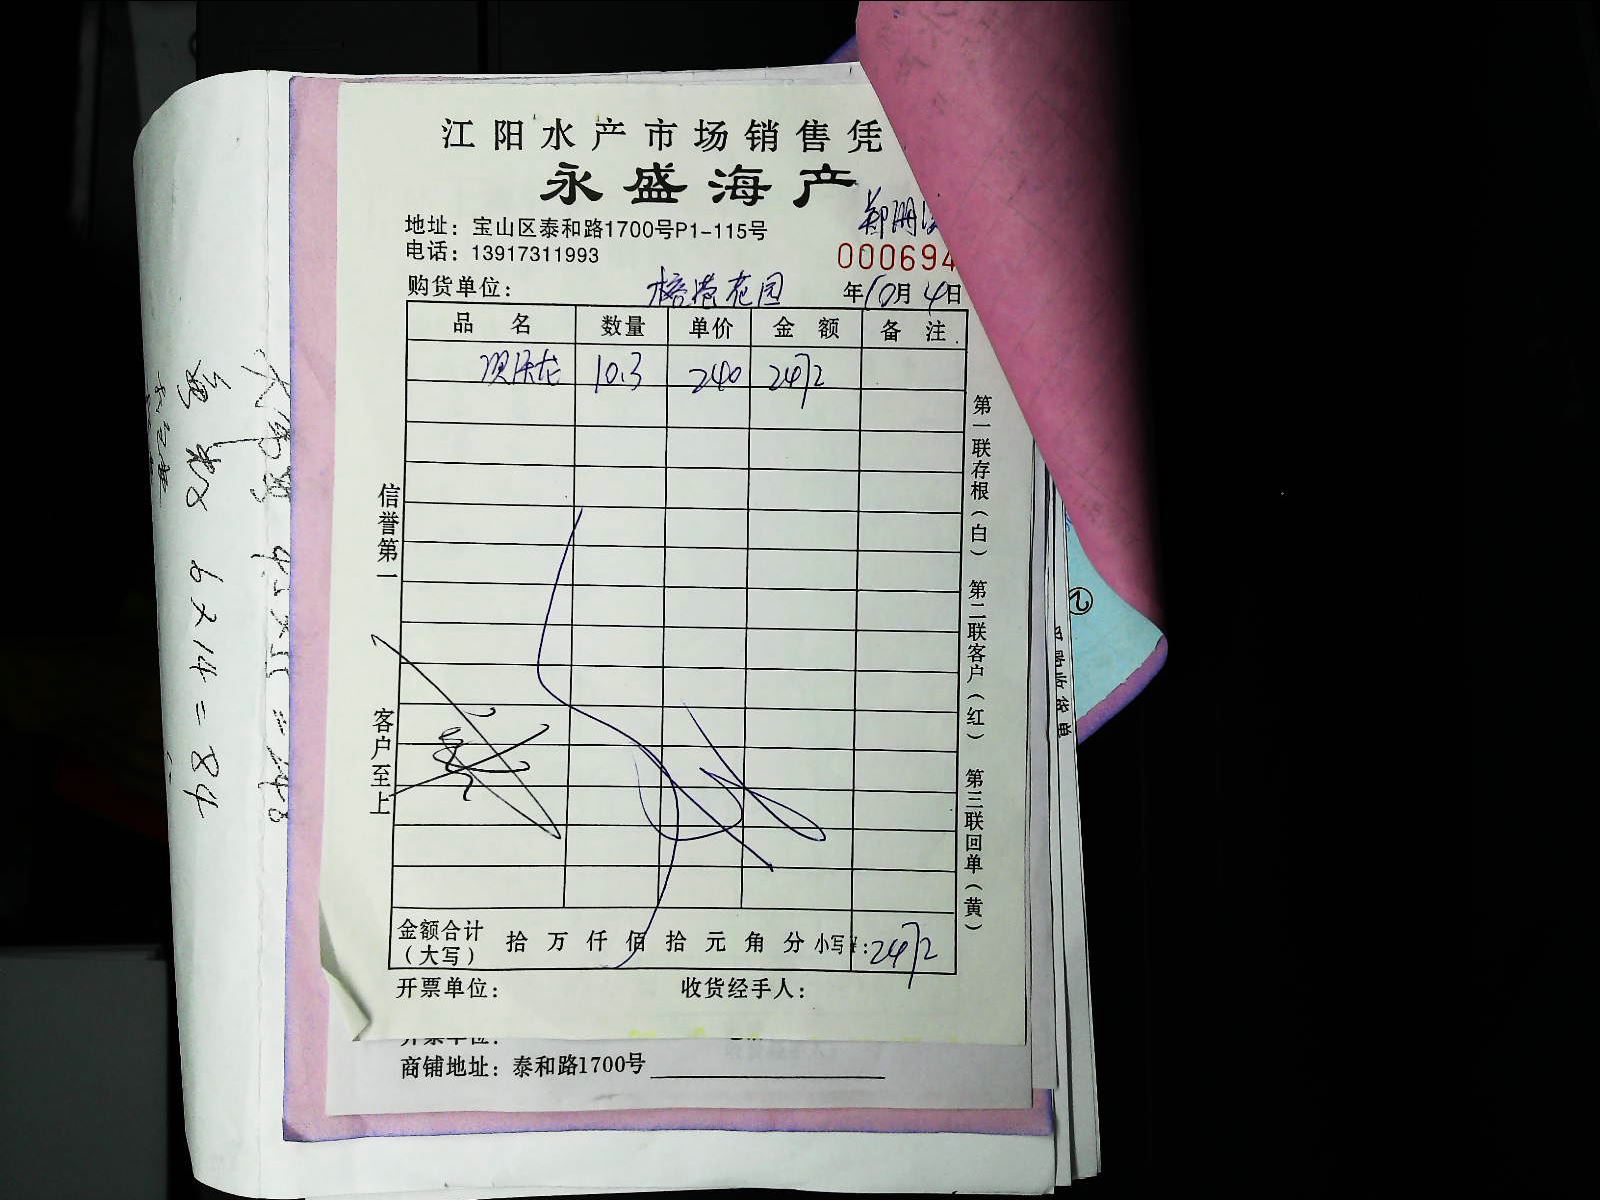 江阳水产市场销售凭
永盛海产
地址：宝山区泰和路1700号P1-115号
电话：13917311993
000694
购货单位： 榕港花园 年10月4日
品名 数量 单价 金额 备注
10.3 240 2472
信誉第一
客户至上
第一联存根（白） 第二联客户（红） 第三联回单（黄）
金额合计（大写） 拾万仟佰拾元角分 小写¥：2472
开票单位： 收货经手人：
开票单位：
商铺地址：泰和路1700号
6×14=84
②